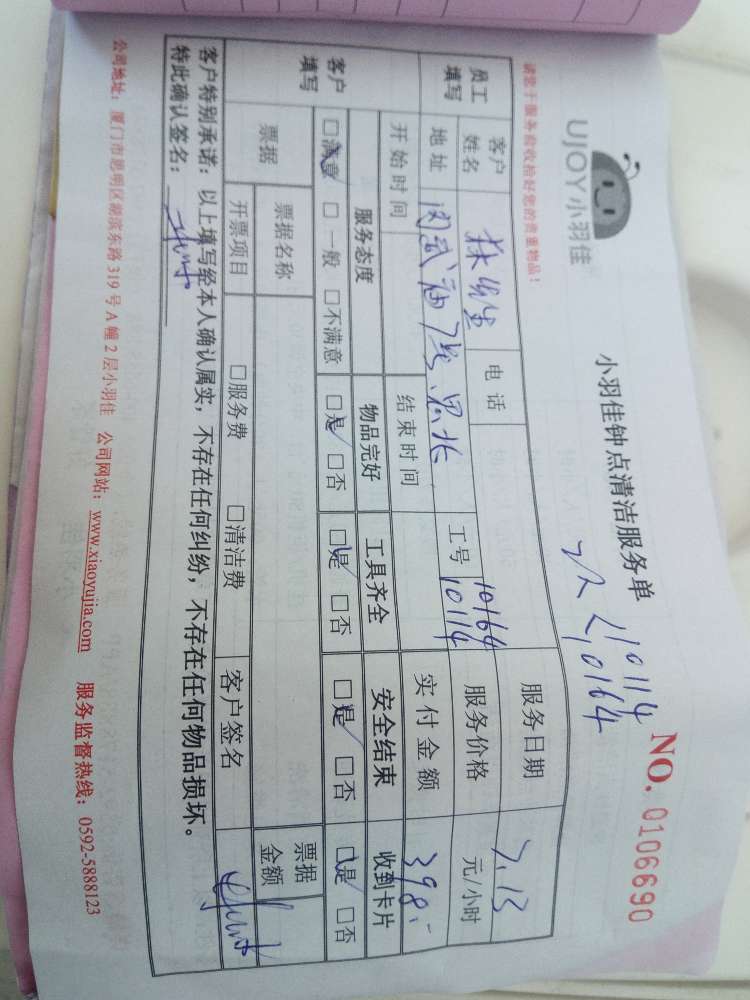 UJOY小羽佳
小羽佳钟点清洁服务单
NO. 0106690
10114
10164
请您于服务前收拾好您的贵重物品！
服务日期 7.13
员工填写
客户姓名 林先生 电话 服务价格 元/小时
地址 工号 10164 10114
开始时间 结束时间 实付金额 398.-
客户填写
服务态度 物品完好 工具齐全 安全结束 收到卡片
□满意 □一般 □不满意 □是 □否 □是 □否 □是 □否 □是 □否
票据 票据名称 票据金额
开票项目 □服务费 □清洁费 客户签名
客户特别承诺：以上填写经本人确认属实，不存在任何纠纷，不存在任何物品损坏。
特此确认签名：
公司地址：厦门市思明区湖滨东路319号A幢2层小羽佳 公司网站：www.xiaoyujia.com 服务监督热线：0592-5888123